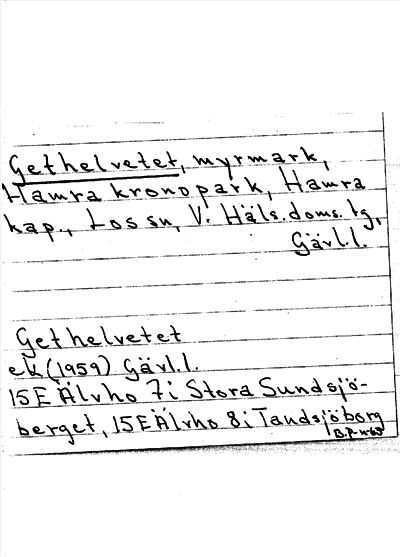 Gethelvetet, myrmark,
Hamra kronopark, Hamra
kap., Los sn, V. Häls. doms. tg,
Gävl.l.
Gethelvetet
ek (1959) Gävl.l.
15E Älvho 7i Stora Sundsjö-
berget, 15E Älvho 8i Tandsjöborg